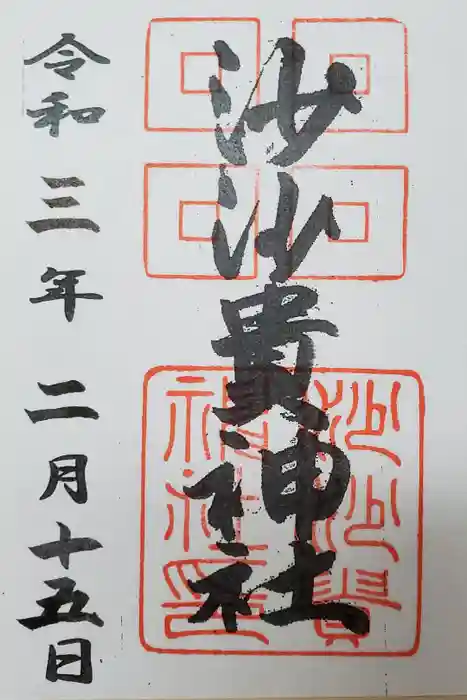 沙沙貴神社
令和三年二月十五日
沙沙貴
神社印